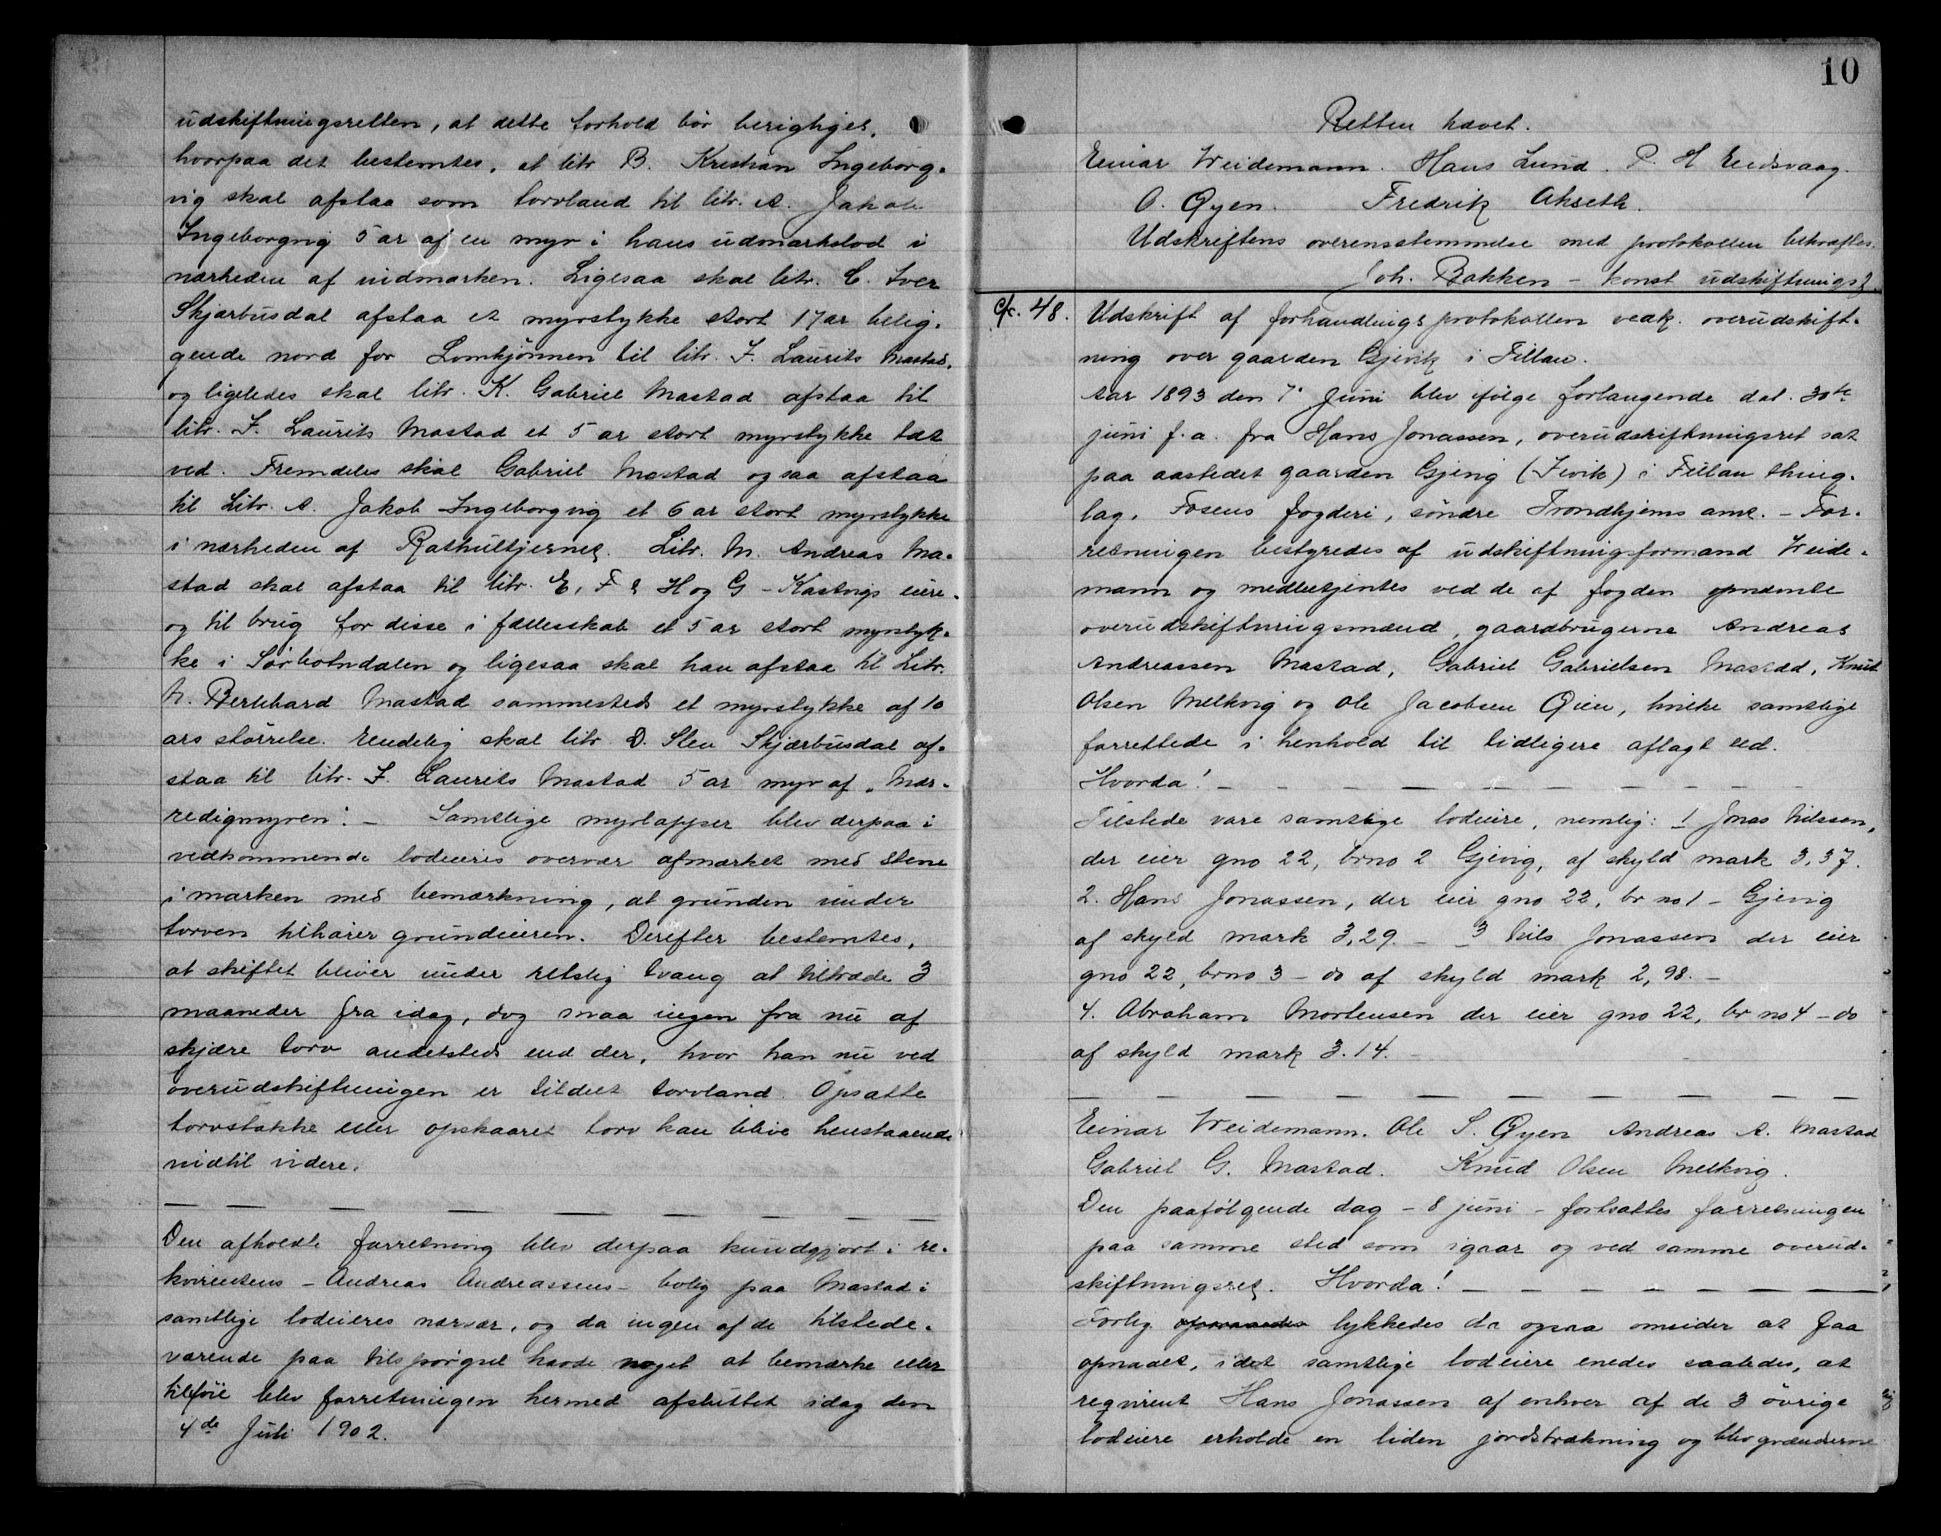 udskiftningsretten, at dette forhold bör berigtiges,
hvorpaa det bestemtes, at litr B. Kristian Ingeborg-
vig skal afstaa som torvland til litr. A. Jakob
Ingeborgvig 5 ar af en myr i hans udmarkslod i
nærheden af indmarken. Ligesaa skal litr. C. Iver
Skjærbusdal afstaa et myrstykke stort 17 ar belig-
gende nord for Lomkjönnen til litr. I. Laurits Mastad,
og ligeledes skal litr. K. Gabriel Mastad afstaa til
litr. I. Laurits Mastad et 5 ar stort myrstykke tæt
ved. Fremdeles skal Gabriel Mastad ogsaa afstaa
til Litr. A. Jakob Ingeborgvig et 6 ar stort myrstykke
i nærheden af Rathultjernet. Litr. M. Andreas Ma-
stad skal afstaa til litr. E, F & H og G - Kastvigs eiere -
og til brug for disse i fællesskab et 5 ar stort myrstyk-
ke i Sörbotndalen og ligesaa skal han afstaa til Litr.
N. Berthard Mastad sammesteds et myrstykke af 10
ars störrelse. Endelig skal litr D. Sten Skjærbusdal af-
staa til litr. I. Laurits Mastad 5 ar myr af „Mær-
redigmyren". - Samtlige myrlapper blev derpaa i
vedkommende lodeieres overvær afmærket med stene
i marken med bemærkning, at grunden under
torven tilhörer grundeieren. Derefter bestemtes,
at skiftet bliver under retslig tvang at tiltræde 3
maaneder fra idag, dog maa ingen fra nu af
skjære torv andetsteds end der, hvor han nu ved
overudskiftningen er tildelt torvland. Opsatte
torvstakke eller opskaaret torv kan blive henstaaende
indtil videre.
Den afholdte forretning blev derpaa kundgjort i re-
kvirentens - Andreas Andreassens - bolig paa Mastad i
samtlige lodeieres nærvær, og da ingen af de tilstede-
værende paa tilspörgsel havde noget at bemærke eller
tilföie blev forretningen hermed afsluttet idag den
4de Juli 1902.
10
Retten hævet.
Einar Weidemann. Hans Lund. P. H Eidsvaag.
O. Øyen. Fredrik Akseth.
Udskriftens overensstemmelse med protokollen bekræftes.
Joh. Bakken - konst udskiftningsf.
No. 48. Udskrift af forhandlingsprotokollen vedk. overudskift-
ning over gaarden Gjevik i Fillan.
Aar 1893 den 7' Juni blev ifölge forlangende dat. 30te
juni f.a. fra Hans Jonassen, overudskiftningsret sat
paa aastedet gaarden Gjevig (Jevik) i Fillan thing-
lag, Fosens fogderi, söndre Trondhjems amt. - For-
retningen bestyredes af udskiftningsformand Weide-
mann og medbetjentes ved de af fogden opnævnte
overudskiftningsmænd, gaardbrugerne Andreas
Andreassen Mastad, Gabriel Gabrielsen Mastad, Knut
Olsen Melkvig og Ole Jacobsen Øien, hvilke samtlige
forrettede i henhold til tidligere aflagt ed.
Hvorda!
Tilstede vare samtlige lodeiere, nemlig: 1 Jonas Nilssen,
der eier gno 22, brno 2 Gjevig, af skyld mark 3,37.
2. Hans Jonassen, der eier gno 22, br no 1 - Gjevig
af skyld mark 3,29. - 3 Nils Jonassen der eier
gno 22, brno 3 - do af skyld mark 2,98. -
4. Abraham Mortensen der eier gno 22, br no 4 - do
af skyld mark 3.14.
Einar Weidemann. Ole S. Øyen Andreas A. Mastad
Gabriel G. Mastad. Knud Olsen Melkvig.
Den paafölgende dag - 8 juni - fortsattes forretningen
paa samme sted som igaar og ved samme overud-
skiftningsret. Hvorda!
Forlig opnaaedes lykkedes da ogsaa omsider at faa
opnaaet, idet samtlige lodeiere enedes saaledes, at
reqvirent Hans Jonassen af enhver af de 3 övrige
lodeiere erholde en liden jordstrækning og blev grændserne